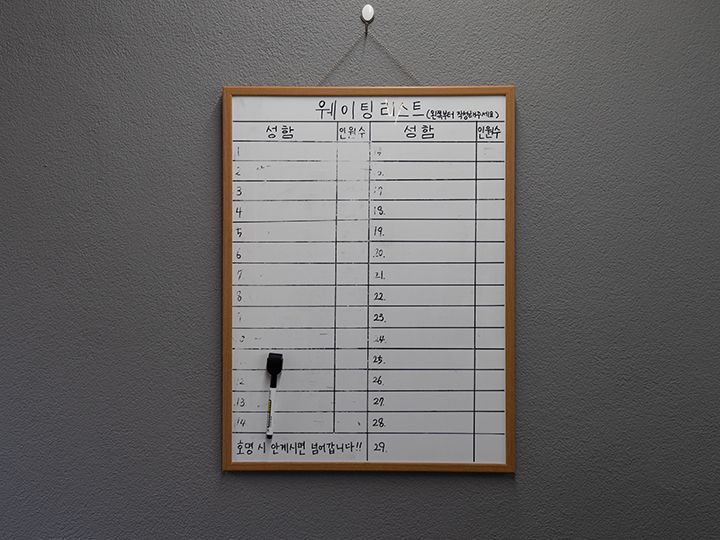 웨이팅 리스트 (왼쪽부터 작성해주세요)
성함 인원수 성함 인원수
1
2
3
4 18.
5 19.
6 20.
7 21.
8 22.
23.
24.
25.
12 26.
13 27.
14 28.
호명 시 안계시면 넘어갑니다!! 29.